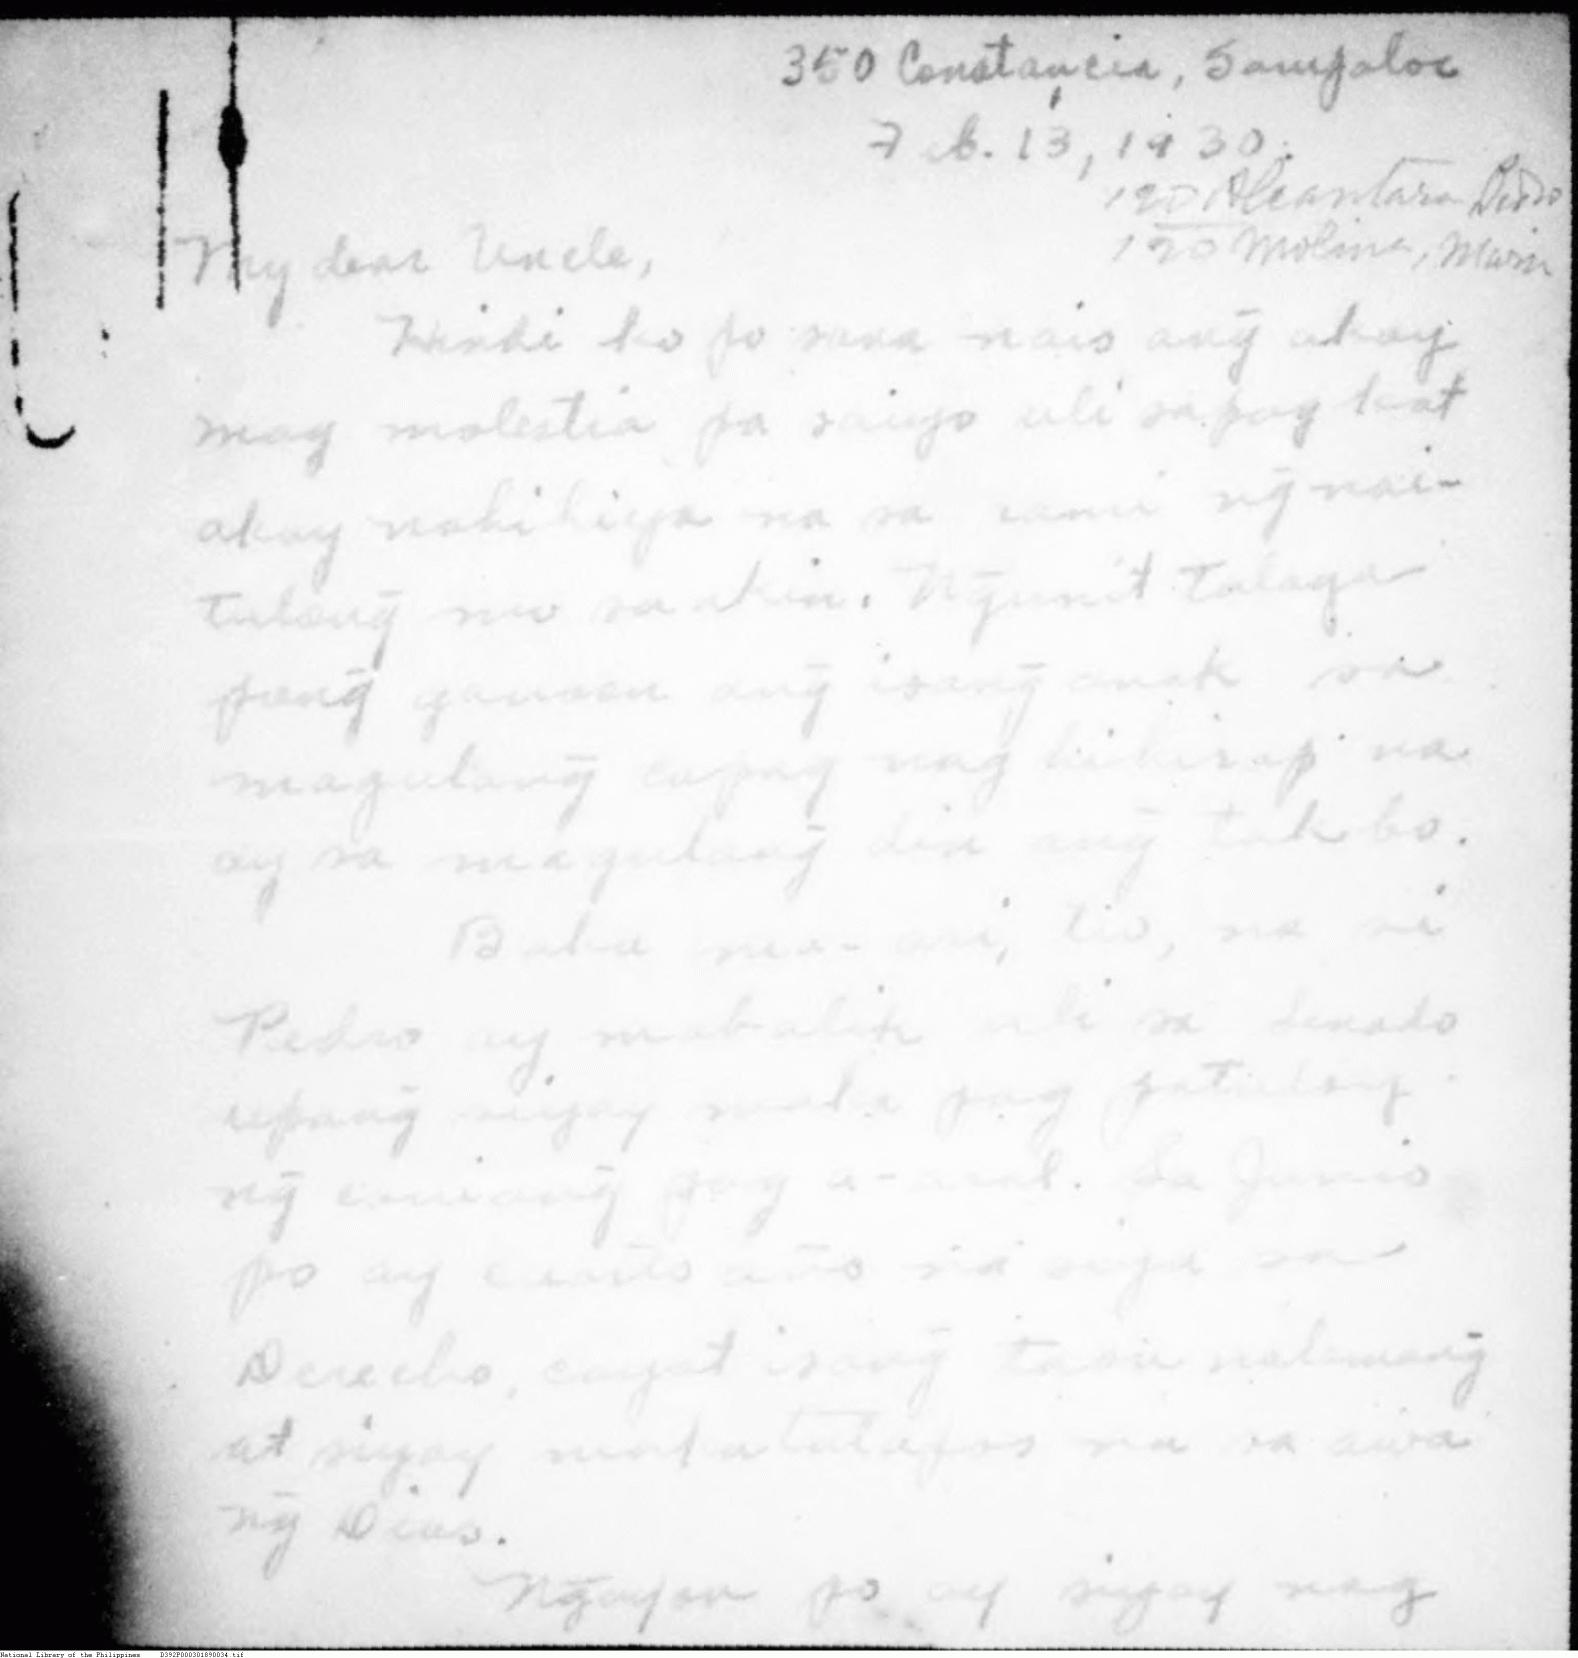 350 Constancia, Sampaloc
Feb. 13, 1930.
190 Alcantara Pedro
190 Molina, Maria
My dear Uncle,
Hindi ko po sana nais ang̃ akoy
mag molestia pa saiyo uli sapagkat
akoy nahihiya na sa rami ng̃ nai-
tulong̃ mo sa akin. Ng̃unit talaga
pong̃ ganoon ang̃ isang̃ anak sa
magulang̃ capag nag hihirap na
ay sa magulang̃ din ang̃ takbo.
Baka maa-ari, tio, na si
Pedro ay mabalik uli sa Senado
upang̃ siyay maka pag patuloy
ng̃ caniang̃ pag a-aral. Sa Junio
po ay cuarto año na siya sa
Derecho, cayat isang̃ taon nalamang̃
at siyay makatatapos na sa awa
ng̃ Dios.
Ng̃ayon po ay siyay nag
National Library of the Philippines D392P000301890034.tif